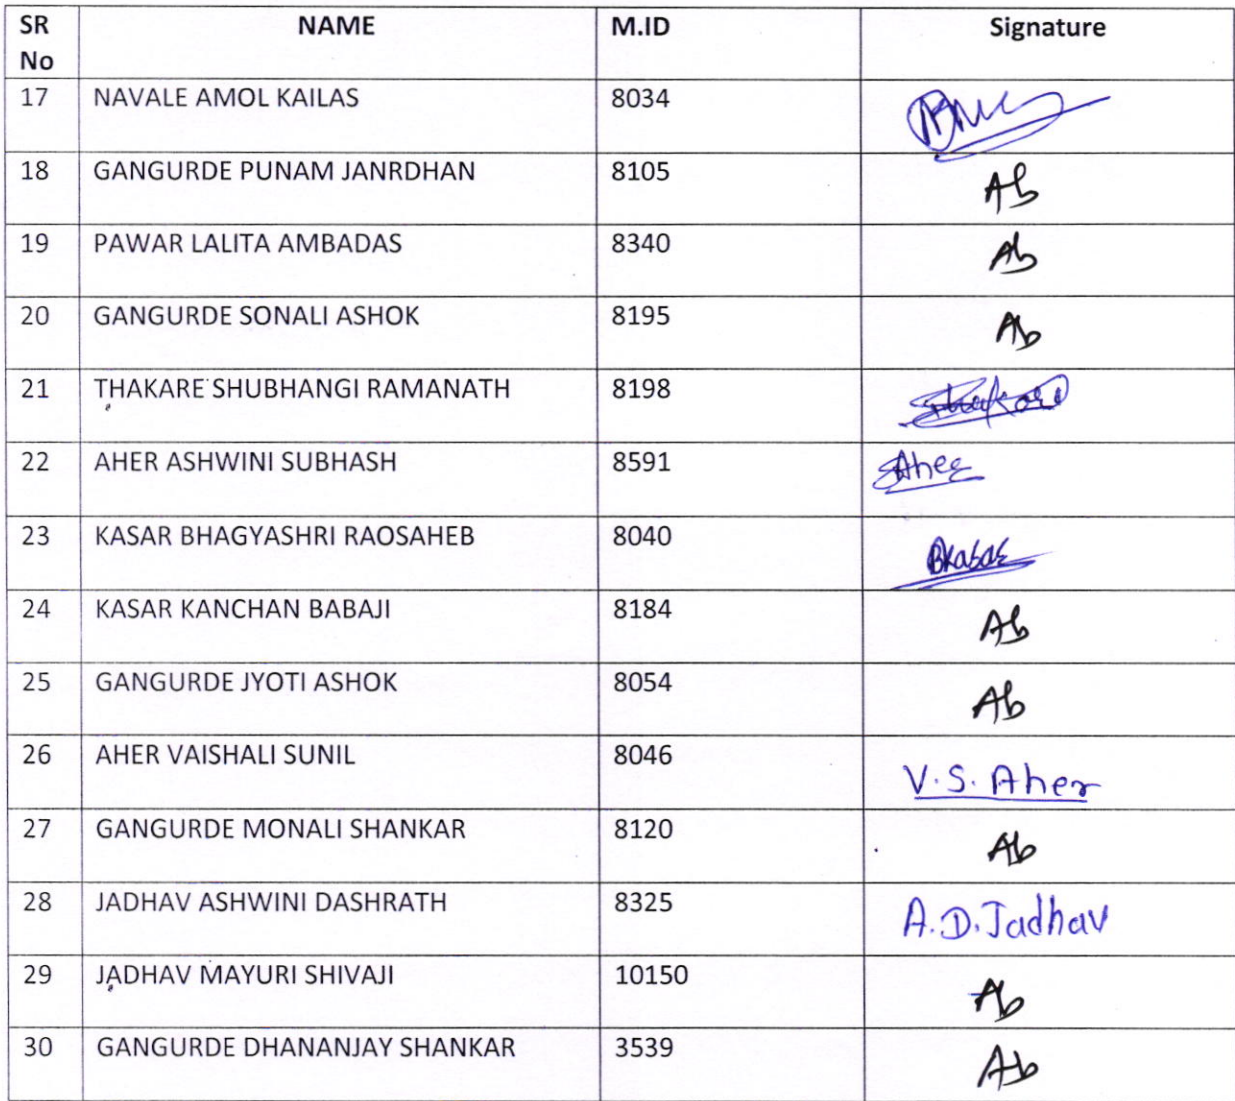 SR No NAME M.ID Signature
17 NAVALE AMOL KAILAS 8034
18 GANGURDE PUNAM JANRDHAN 8105 Ab
19 PAWAR LALITA AMBADAS 8340 Ab
20 GANGURDE SONALI ASHOK 8195 Ab
21 THAKARE SHUBHANGI RAMANATH 8198 Thakare
22 AHER ASHWINI SUBHASH 8591 Aher
23 KASAR BHAGYASHRI RAOSAHEB 8040 BKasar
24 KASAR KANCHAN BABAJI 8184 Ab
25 GANGURDE JYOTI ASHOK 8054 Ab
26 AHER VAISHALI SUNIL 8046 V.S. Aher
27 GANGURDE MONALI SHANKAR 8120 Ab
28 JADHAV ASHWINI DASHRATH 8325 A.D.Jadhav
29 JADHAV MAYURI SHIVAJI 10150 Ab
30 GANGURDE DHANANJAY SHANKAR 3539 Ab